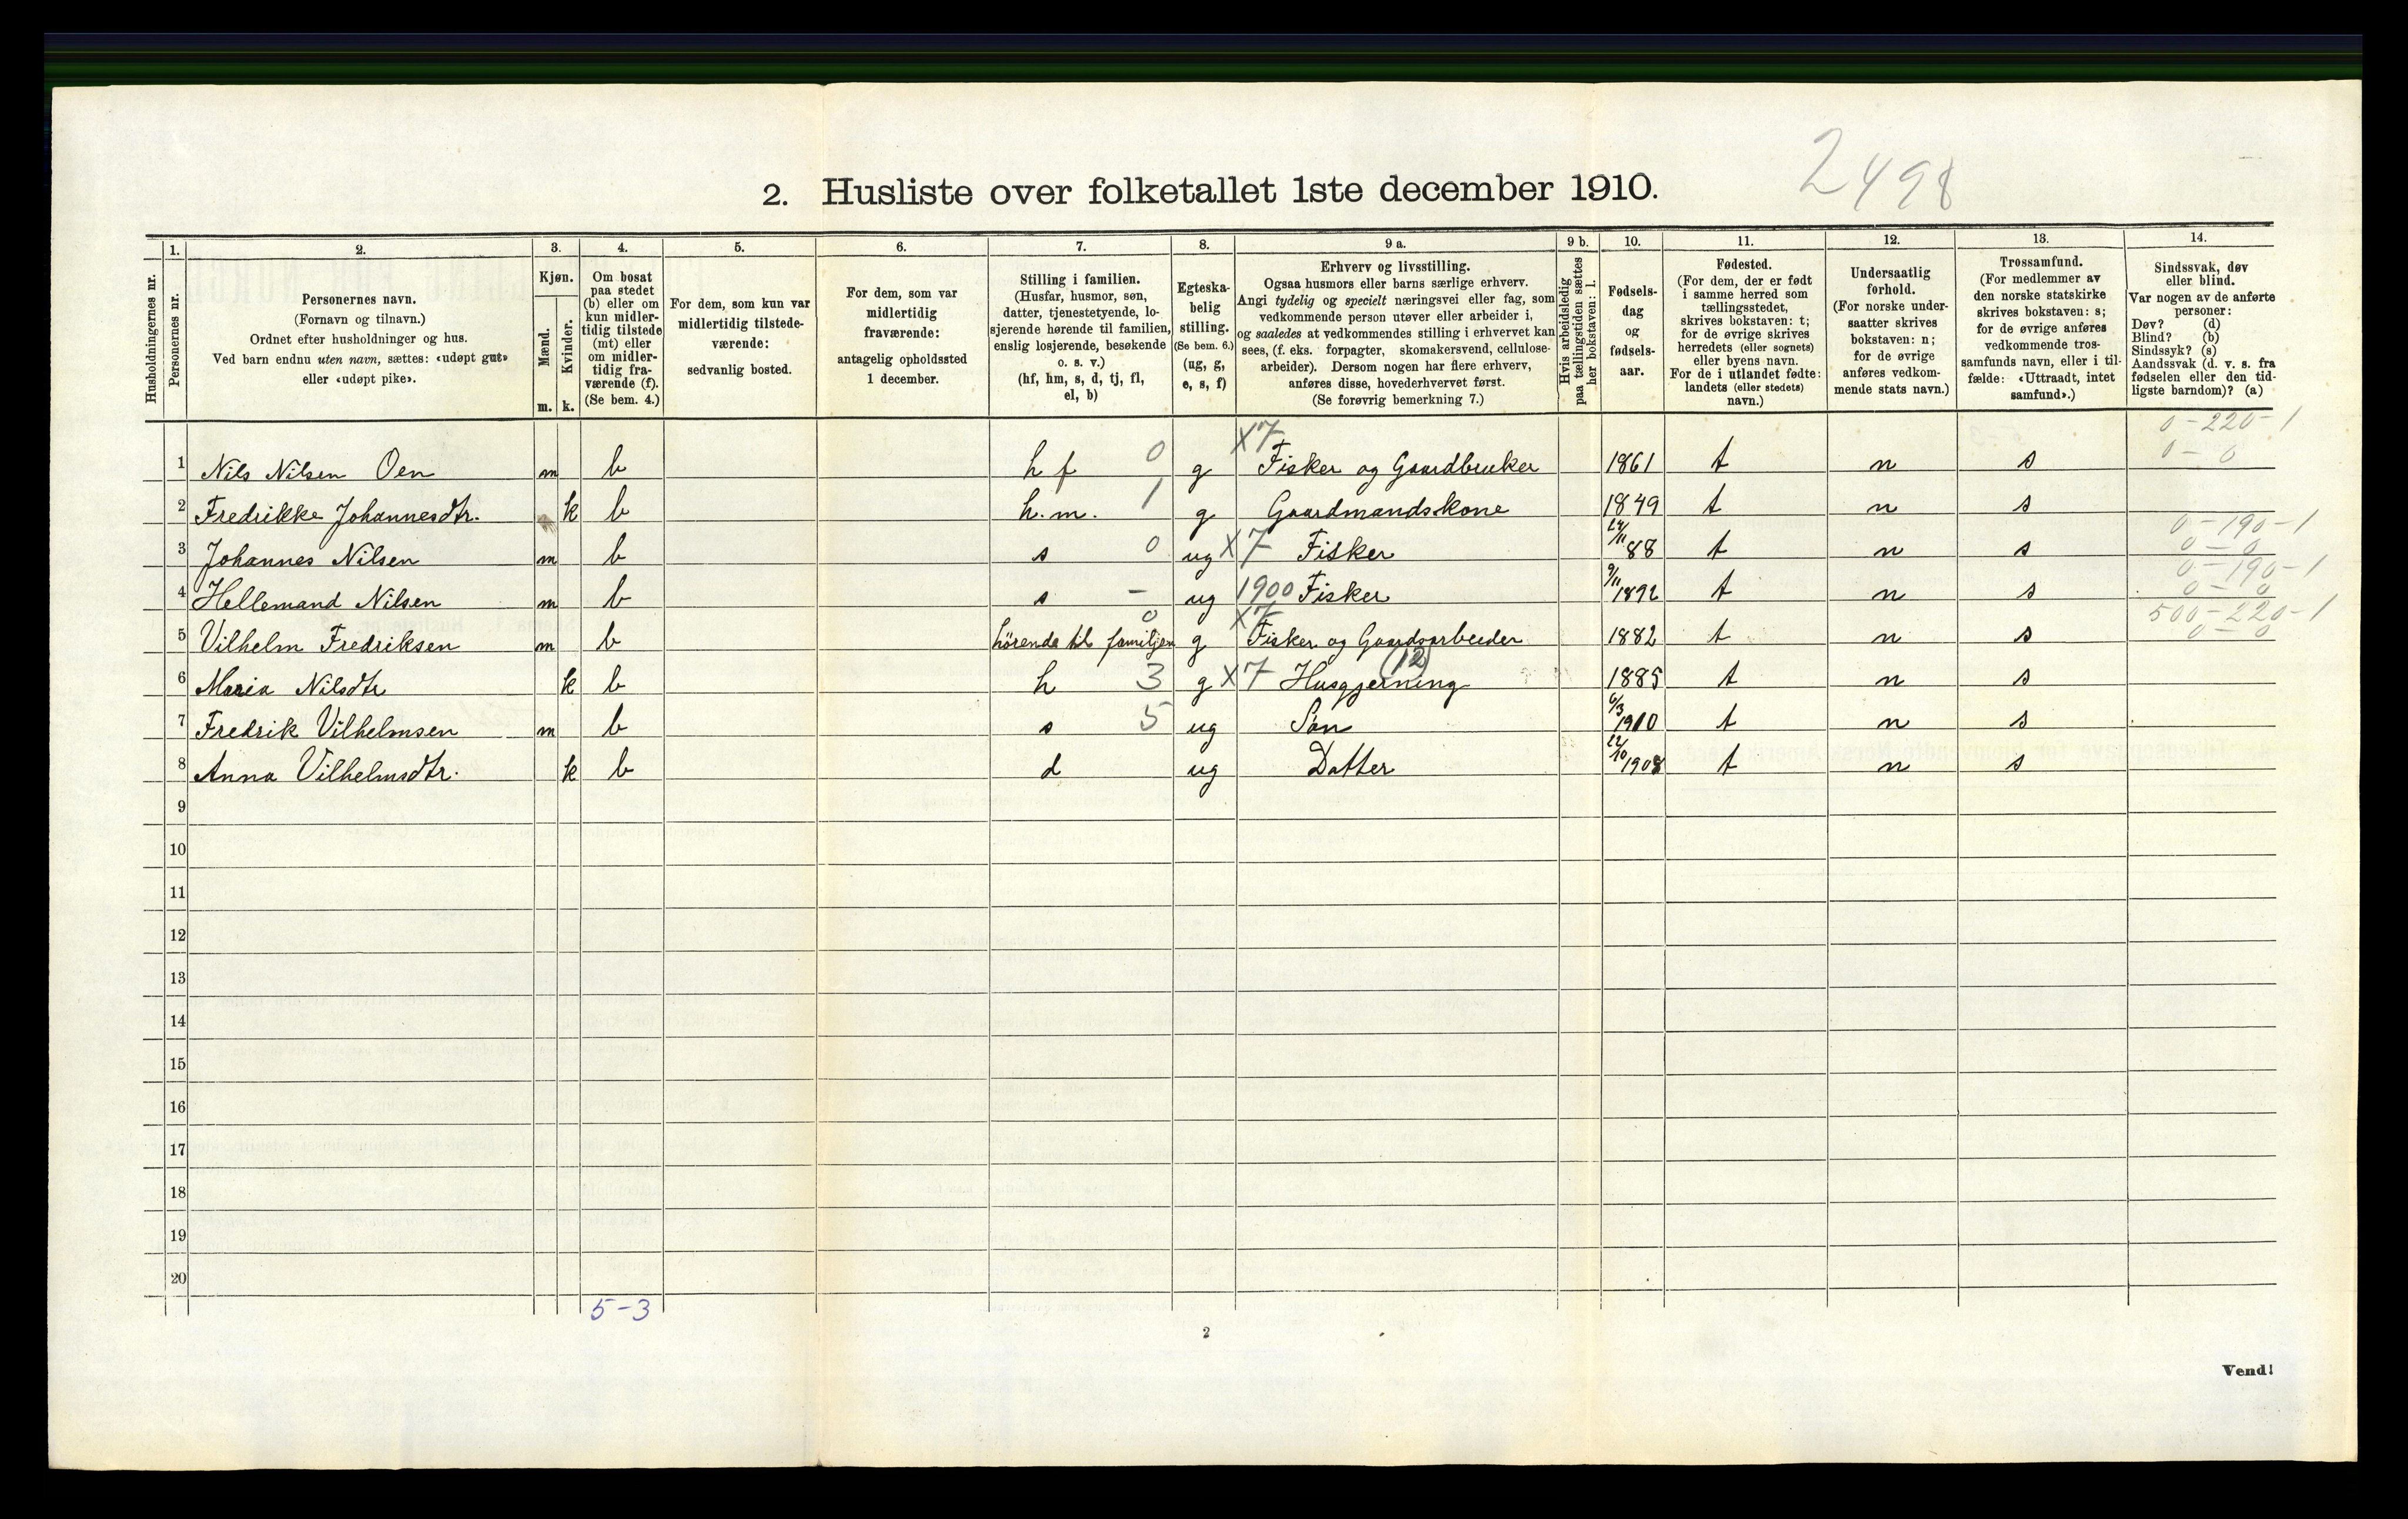 2498
2. Husliste over folketallet 1ste december 1910.
Husholdningernes nr.
1.
Personernes nr.
2.
Personernes navn.
(Fornavn og tilnavn.)
Ordnet efter husholdninger og hus.
Ved barn endnu uten navn, sættes: «udøpt gut»
eller «udøpt pike».
3.
Kjøn.
Mænd.
Kvinder.
m. k.
4.
Om bosat
paa stedet
(b) eller om
kun midler-
tidig tilstede
(mt) eller
om midler-
tidig fra-
værende (f).
(Se bem. 4.)
5.
For dem, som kun var
midlertidig tilstede-
værende:
sedvanlig bosted.
6.
For dem, som var
midlertidig
fraværende:
antagelig opholdssted
1 december.
7.
Stilling i familien.
(Husfar, husmor, søn,
datter, tjenestetyende, lo-
sjerende hørende til familien,
enslig losjerende, besøkende
o. s. v.)
(hf, hm, s, d, tj, fl,
el, b)
8.
Egteska-
belig
stilling.
(Se bem. 6.)
(ug, g,
e, s, f)
9 a.
Erhverv og livsstilling.
Ogsaa husmors eller barns særlige erhverv.
Angi tydelig og specielt næringsvei eller fag, som
vedkommende person utøver eller arbeider i,
og saaledes at vedkommendes stilling i erhvervet kan
sees, (f. eks. forpagter, skomakersvend, cellulose-
arbeider). Dersom nogen har flere erhverv,
anføres disse, hovederhvervet først.
(Se forøvrig bemerkning 7.)
9 b.
Hvis arbeidsledig
paa tællingstiden sættes
her bokstaven: l.
10.
Fødsels-
dag
og
fødsels-
aar.
11.
Fødested.
(For dem, der er født
i samme herred som
tællingsstedet,
skrives bokstaven: t;
for de øvrige skrives
herredets (eller sognets)
eller byens navn.
For de i utlandet fødte:
landets (eller stedets)
navn.)
12.
Undersaatlig
forhold.
(For norske under-
saatter skrives
bokstaven: n;
for de øvrige
anføres vedkom-
mende stats navn.)
13.
Trossamfund.
(For medlemmer av
den norske statskirke
skrives bokstaven: s;
for de øvrige anføres
vedkommende tros-
samfunds navn, eller i til-
fælde: «Uttraadt, intet
samfund».)
14.
Sindssvak, døv
eller blind.
Var nogen av de anførte
personer:
Døv? (d)
Blind? (b)
Sindssyk? (s)
Aandssvak (d. v. s. fra
fødselen eller den tid-
ligste barndom)? (a)
X7 0-220-1
1 Nils Nilsen Oen m b h f 0 g Fisker og Gaardbruker 1861 t n s 0-0
2 Fredrikke Johannesdtr. k b h.m. 1 g Gaardmandskone 1849 t n s
0-190-1
3 Johannes Nilsen m b s 0 ug X7 Fisker 24/11 88 t n s 0-0
0-190-1
4 Hellemand Nilsen m b s - ug 1900 Fisker 9/11 1892 t n s 0-0
0 X7 500-220-1
5 Vilhelm Fredriksen m b hörende til familjen g Fisker og Gaardsarbeider 1882 t n s 0-0
(12)
6 Maria Nilsdtr k b h 3 g X7 Husgjerning 1885 t n s
7 Fredrik Vilhelmsen m b s 5 ug Søn 6/3 1910 t n s
8 Anna Vilhelmsdtr. k b d ug Datter 22/10 1908 t n s
9
10
11
12
13
14
15
16
17
18
19
20
5-3
2
Vend!